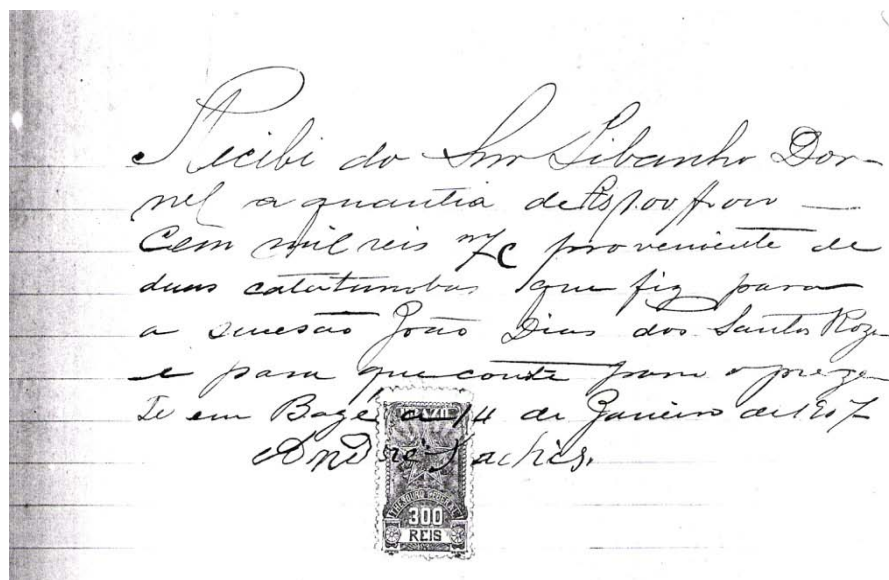 Recibi do Snr Libanho Dor-
nel a quantia de Rs 100$000 —
Cem mil reis m/c proveniente de
duas catatumbas que fiz para
a sucesão João Dias dos Santos Roza
e para que conste passo o preze-
te em Bagé a 14 de Janeiro de 1907
André
BRAZIL
THESOURO FEDERAL
300
REIS